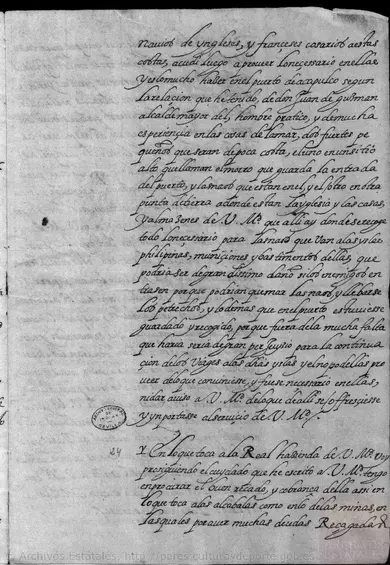 navios de yngleses, y franceses cosarios a estas
costas, acudi luego a proveer lo necesario en ellas
y es lo mucho haber en el puerto de acapulco segun
la relacion que he tenido, de don Juan de guzman
alcalde mayor del, hombre pratico, y de mucha
esperiencia en las cosas de la mar, dos fuertes pe
queños que seran de poca costa, el uno en un sitio
alto que llaman el morro que guarda la entrada
del puerto, y las naos que estan en el, y el otro en otra
punta de tierra adonde estan la yglesia y las casas,
y almazenes de V. Md. que alli ay donde se recoge
todo lo necesario para las naos que van a las yslas
philipinas, municiones, y bastimentos dellas, que
podria ser de grandissimo daño si los enemigos en
trasen porque podrian quemar las naos, y llebarse
los petrechos, y lo demas que en el puerto estuviesse
guardado y recogido, porque fuera de la mucha falta
que haria seria de gran perjuyzio para la continua
cion de los viages a las dhas yslas y el no podellas pro
veer de lo que conviniesse, y fuese necesario en ellas,
ni dar aviso a V. Md. de lo que de alli se offresciesse
y ynportasse al servicio de V. Md.
24
En lo que toca a la Real hazienda de V. Md. voy
prosiguiendo el cuydado que he escrito a V. Md. tengo
en procurar el buen recado, y cobrança della assi en
lo que toca a las alcabalas como en lo de las minas, en
las quales por aver muchas deudas Recagada
SEVILLA
Archivos Estatales, http://pares.culturaydeporte.gob.es